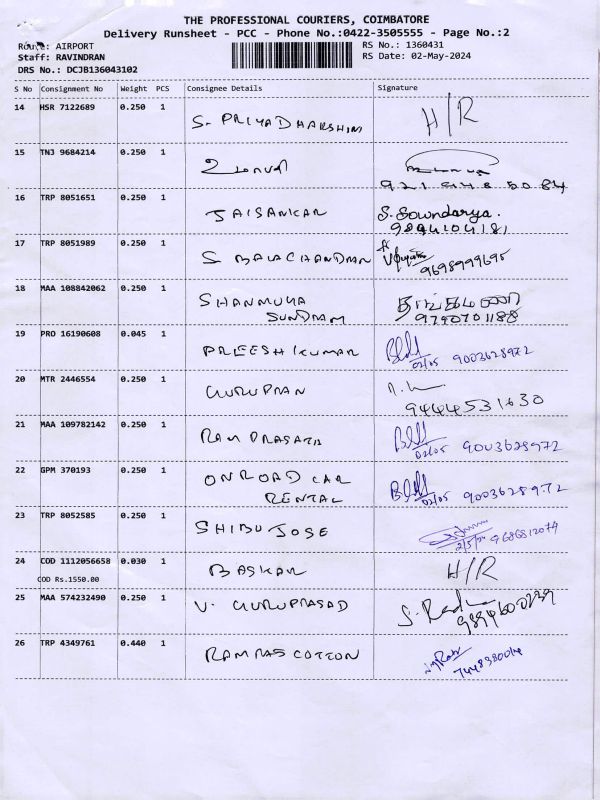 THE PROFESSIONAL COURIERS, COIMBATORE
Delivery Runsheet - PCC - Phone No.:0422-3505555 - Page No.:2
Route: AIRPORT RS No.: 1360431
Staff: RAVINDRAN RS Date: 02-May-2024
DRS No.: DCJB136043102
S No Consignment No Weight PCS Consignee Details Signature
14 HSR 7122689 0.250 1 S. PRIYADHARSHINI H/R
15 TNJ 9684214 0.250 1
16 TRP 8051651 0.250 1 JAISANKAR S. Sowndarya.
9894104181
17 TRP 8051989 0.250 1 S BALACHANDRAN
9698999695
18 MAA 108842062 0.250 1 SHANMUGA
SUNDRAM 9790701188
19 PRO 16190608 0.045 1 PREESHKUMAR
02/05 9003628972
20 MTR 2446554 0.250 1 GURUPRAN
9444531630
21 MAA 109782142 0.250 1 RAMPRASATH
02/05 9003628972
22 GPM 370193 0.250 1 ONROAD CAR
RENTAL 02/05 9003628972
23 TRP 8052585 0.250 1 SHIBU JOSE
2/5/24 9686812074
24 COD 1112056658 0.030 1 BASKAR H/R
COD Rs.1550.00
25 MAA 574232490 0.250 1 V. GURUPRASAD
26 TRP 4349761 0.440 1 RAMRAS COTTON